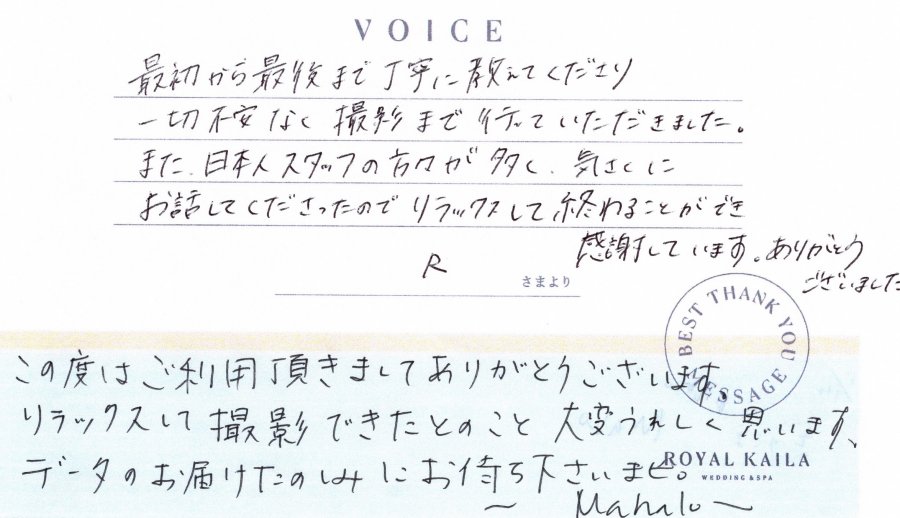 VOICE
最初から最後まで丁寧に教えてくださり
一切不安なく撮影まで行っていただきました。
また、日本人スタッフの方々が多く、気さくに
お話してくださったのでリラックスして終わることができ
感謝しています。ありがとう
ございました
R
さまより
BEST THANK YOU MESSAGE
この度はご利用頂きましてありがとうございます。
リラックスして撮影できたとのこと大変うれしく思います、
データのお届けたのしみにお待ち下さいませ。
ROYAL KAILA
WEDDING & SPA
〜Mahalo〜